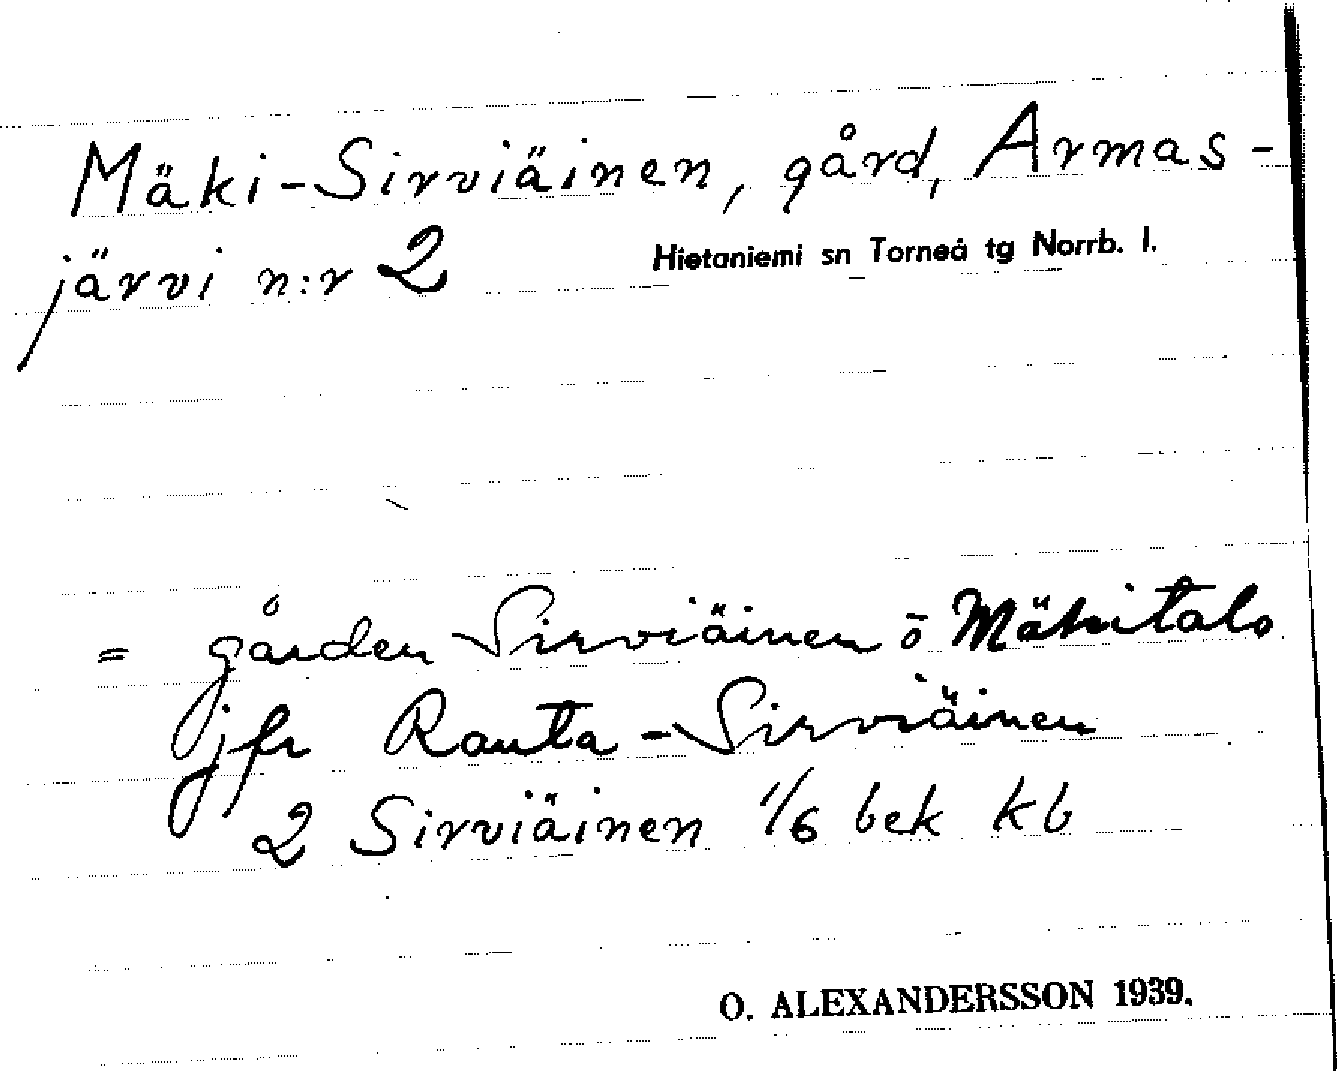 Mäki-Sirviäinen, gård, Armas-
järvi n:r 2 Hietaniemi sn Torneå tg Norrb. l.
= gården Sirviäinen ö Mäkitalo
jfr Rauta-Sirviäinen
2 Sirviäinen 1/6 bek kb
O. ALEXANDERSSON 1939.